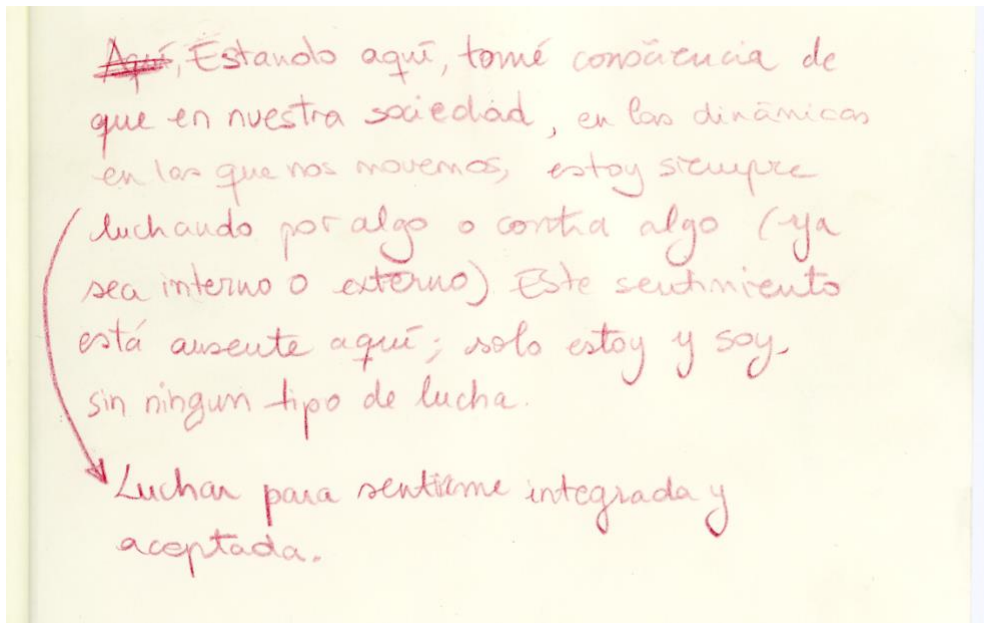 Aquí, Estando aquí, tomé consciencia de
que en nuestra sociedad, en las dinámicas
en las que nos movemos, estoy siempre
luchando por algo o contra algo (ya
sea interno o externo) Este sentimiento
está ausente aquí; solo estoy y soy.
sin ningun tipo de lucha.
Luchar para sentirme integrada y
aceptada.